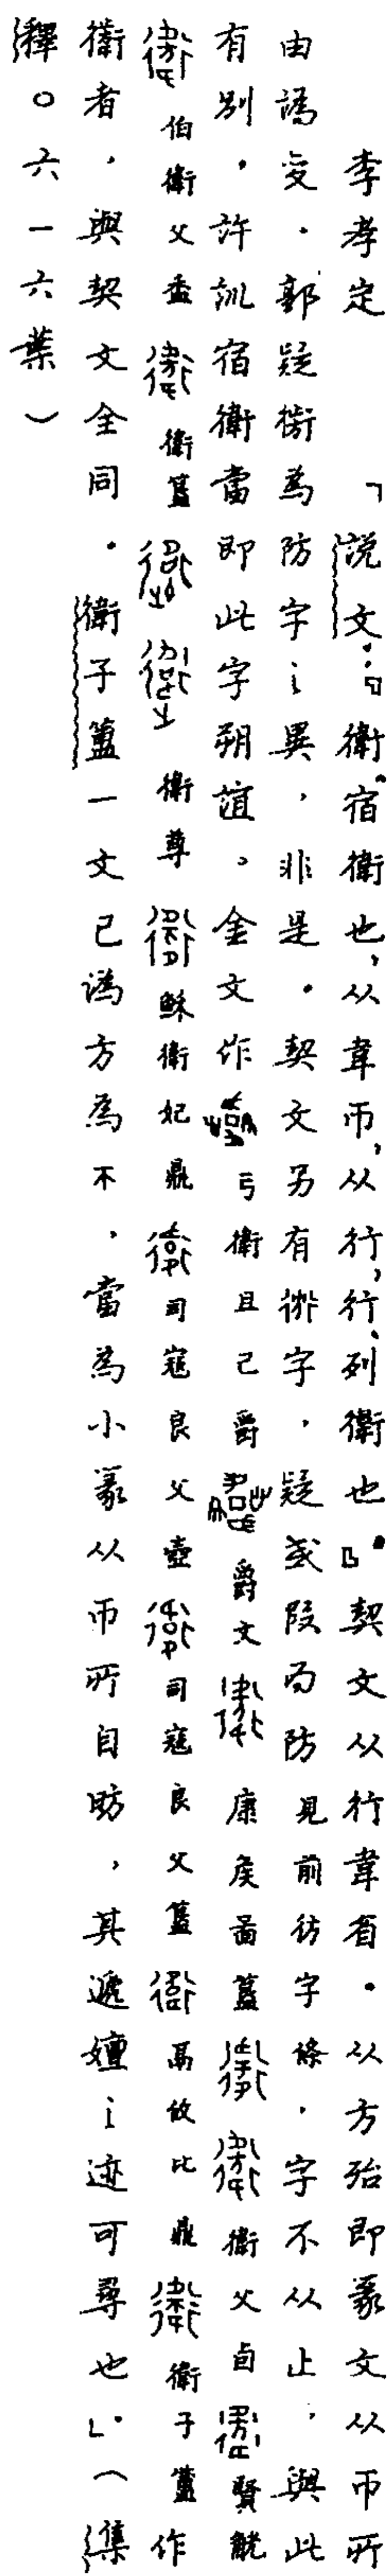 李孝定　「說文：『衛宿衛也，从韋帀，从行，行、列衛也』。契文从行韋省。从方殆即篆文从帀所
由譌變。郭疑衛為防字之異，非是。契文另有𢔬字，疑或叚為防見前彷字條，字不从止，與此
有別。許訓宿衛當即此字朔誼。金文作弓衛且己爵　爵文　康侯啚簋　衛父卣　賢觥
伯衛父盉　衛簋　衛尊　穌衛妃鼎　司寇良父壺　司寇良父簋　鬲攸比鼎　衛子簠作
衛者，與契文全同。衛子簠一文已譌方為不，當為小篆从帀所自昉，其遞嬗之迹可尋也」。（集
釋〇六一六葉）